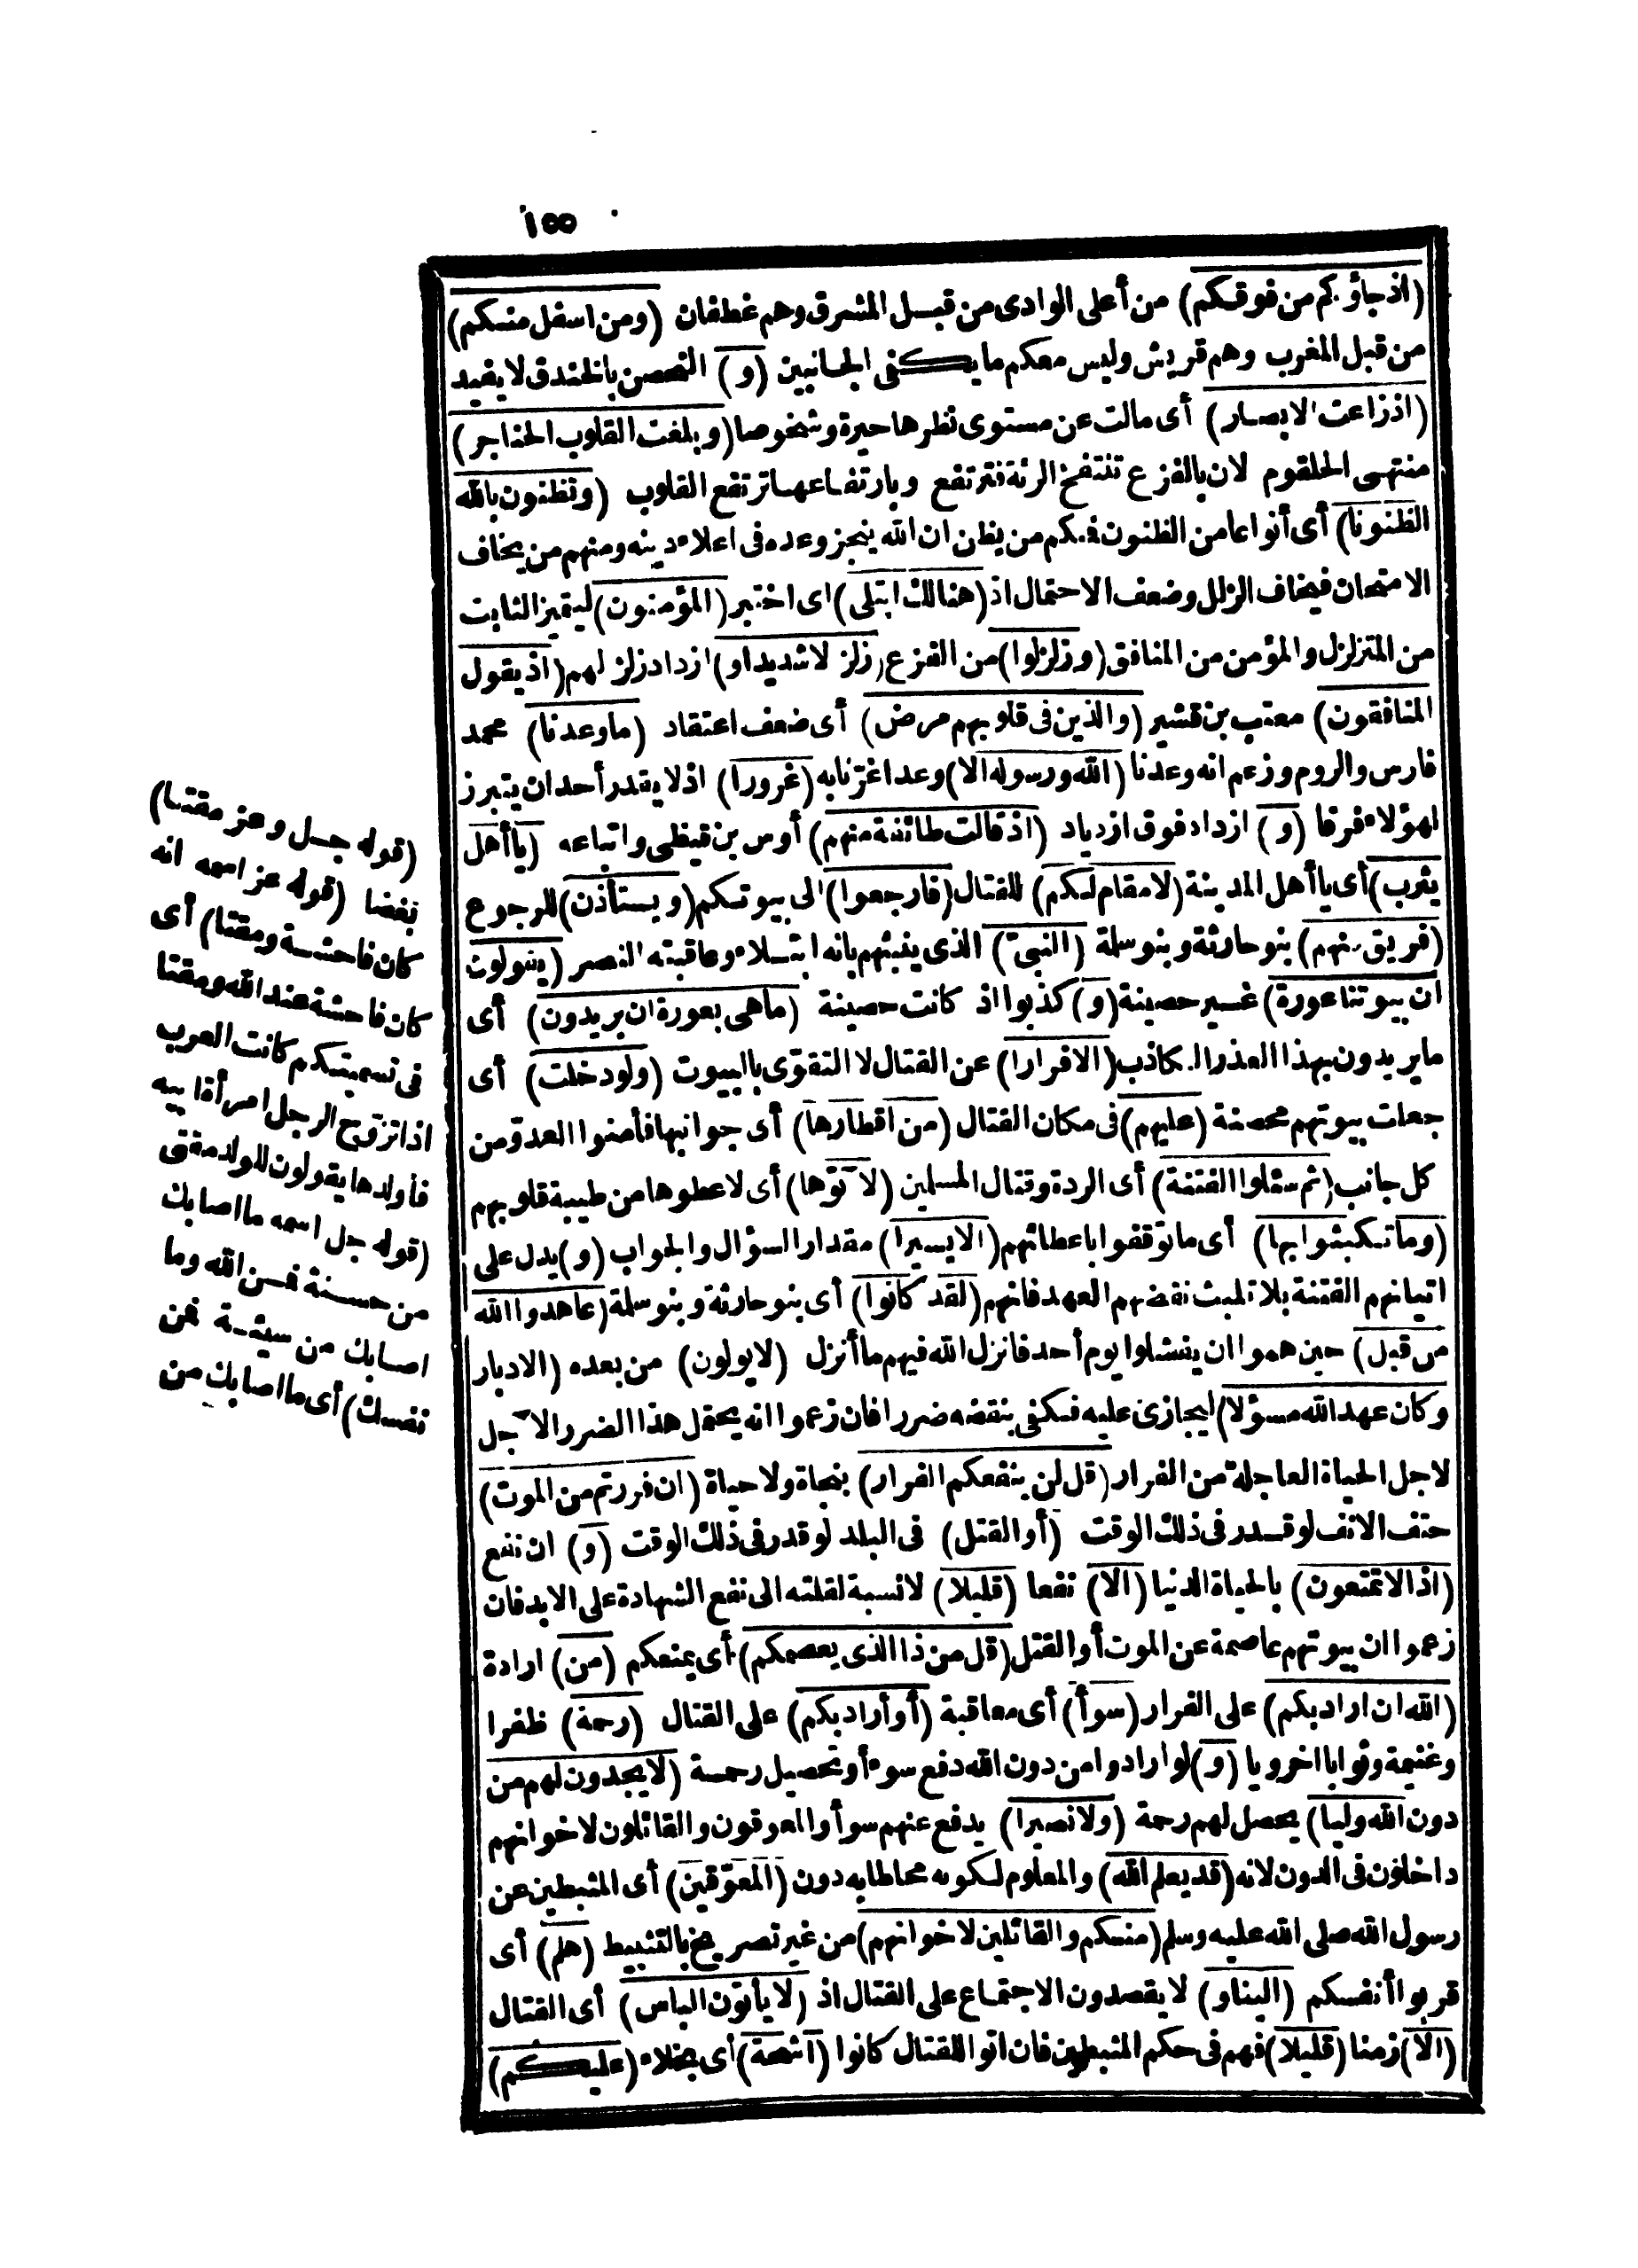 ١٥٥
(اذ جاؤكم من فوقكم) من أعلى الوادى من قبل المشرق وهم غطفان (ومن اسفل منكم)
من قبل المغرب وهم قريش وليس معكم ما يكفى الجانبين (و) التحصن بالخندق لا يفيد
(اذ زاغت الابصار) أى مالت عن مستوى نظرها حيرة وشخوصا (وبلغت القلوب الحناجر)
منتهى الحلقوم لان بالفزع تنتفخ الرئة فترتفع وبارتفاعها ترتفع القلوب (وتظنون بالله
الظنونا) أى أنواعا من الظنون فمنكم من يظن ان الله ينجز وعده فى اعلاء دينه ومنهم من يخاف
الامتحان فيخاف الزلل وضعف الاحتمال اذ (هنالك ابتلى) اى اختبر (المؤمنون) ليتميز الثابت
من المتزلزل والمؤمن من المنافق (وزلزلوا) من الفزع (زلزالا شديدا و) ازداد زلزالهم (اذ يقول
المنافقون) معتب بن قشير (والذين فى قلوبهم مرض) أى ضعف اعتقاد (ما وعدنا) محمد
فارس والروم وزعم انه وعدنا (الله ورسوله الا) وعدا غرنا به (غرورا) اذ لا يقدر أحد ان يتبرز
لهؤلاء فرقا (و) ازداد فوق ازدياد (اذ قالت طائفة منهم) أوس بن قيظى واتباعه (يا أهل
يثرب) أى يا أهل المدينة (لا مقام لكم) للقتال (فارجعوا) الى بيوتكم (ويستأذن) للرجوع
(فريق منهم) بنو حارثة وبنو سلمة (النبىّ) الذى ينبئهم بانه ابتلاء وعاقبته النصر (يقولون
ان بيوتنا عورة) غير حصينة (و) كذبوا اذ كانت حصينة (ما هى بعورة ان يريدون) أى
ما يريدون بهذا العذر الكاذب (الا فرارا) عن القتال لا التقوّى بالبيوت (ولو دخلت) أى
جعلت بيوتهم محصنة (عليهم) فى مكان القتال (من اقطارها) أى جوانبها فأمنوا العدوّ من
كل جانب (ثم سئلوا الفتنة) أى الردة وقتال المسلين (لآتوها) أى لاعطوها من طيبة قلوبهم
(وما تلبثوا بها) أى ما توقفوا باعطائهم (الا يسيرا) مقدار السؤال والجواب (و) يدل على
اتيانهم الفتنة بلا تلبث نقضهم العهد فانهم (لقد كانوا) أى بنو حارثة وبنو سلمة (عاهدوا الله
من قبل) حين هموا ان يفشلوا يوم أحد فانزل الله فيهم ما أنزل (لا يولون) من بعده (الادبار
وكان عهد الله مسؤلا) ليجازى عليه فكفى بنقضه ضررا فان زعموا انه يحتمل هذا الضرر الآجل
لاجل الحياة العاجلة من الفرار (قل لن ينفعكم الفرار) بنجاة ولا حياة (ان فررتم من الموت)
حتف الانف لو قدر فى ذلك الوقت (أو القتل) فى البلد لو قدر فى ذلك الوقت (و) ان نفع
(اذا لا تمتعون) بالحياة الدنيا (الا) نفعا (قليلا) لا نسبة لقلته الى نفع الشهادة على الابد فان
زعموا ان بيوتهم عاصمة عن الموت أو القتل (قل من ذا الذى يعصمكم) أى يمنعكم (من) ارادة
(الله ان اراد بكم) على الفرار (سوأ) أى معاقبة (أو أراد بكم) على القتال (رحمة) ظفرا
وغنيمة وثوابا اخرويا (و) لو ارادوا من دون الله دفع سوء أو تحصيل رحمة (لا يجدون لهم من
دون الله وليا) يحصل لهم رحمة (ولا نصيرا) يدفع عنهم سوأ والمعوقون والقائلون لاخوانهم
داخلون فى الدون لانه (قد يعلم الله) والمعلوم لكونه مخاطا به دون (المعوّقين) أى المثبطين عن
رسول الله صلى الله عليه وسلم (منكم والقائلين لاخوانهم) من غير تصريح بالتثبيط (هلم) أى
قربوا أنفسكم (الينا و) لا يقصدون الاجتماع على القتال اذ (لا يأتون الباس) أى القتال
(الا) زمنا (قليلا) فهم فى حكم المثبطين فان اتوا للقتال كانوا (أشحة) أى بخلاء (عليكم)
(قوله جل وعز مقتا)
بغضا (قوله عز اسمه انه
كان فاحشة ومقتا) أى
كان فاحشة عند الله ومقتا
فى تسميتكم كانت العرب
اذا تزوّج الرجل امرأة ابيه
فأولدها يقولون للولد مقتى
(قوله جل اسمه ما اصابك
من حسنة فمن الله وما
اصابك من سيئة فمن
نفسك) أى ما اصابك من